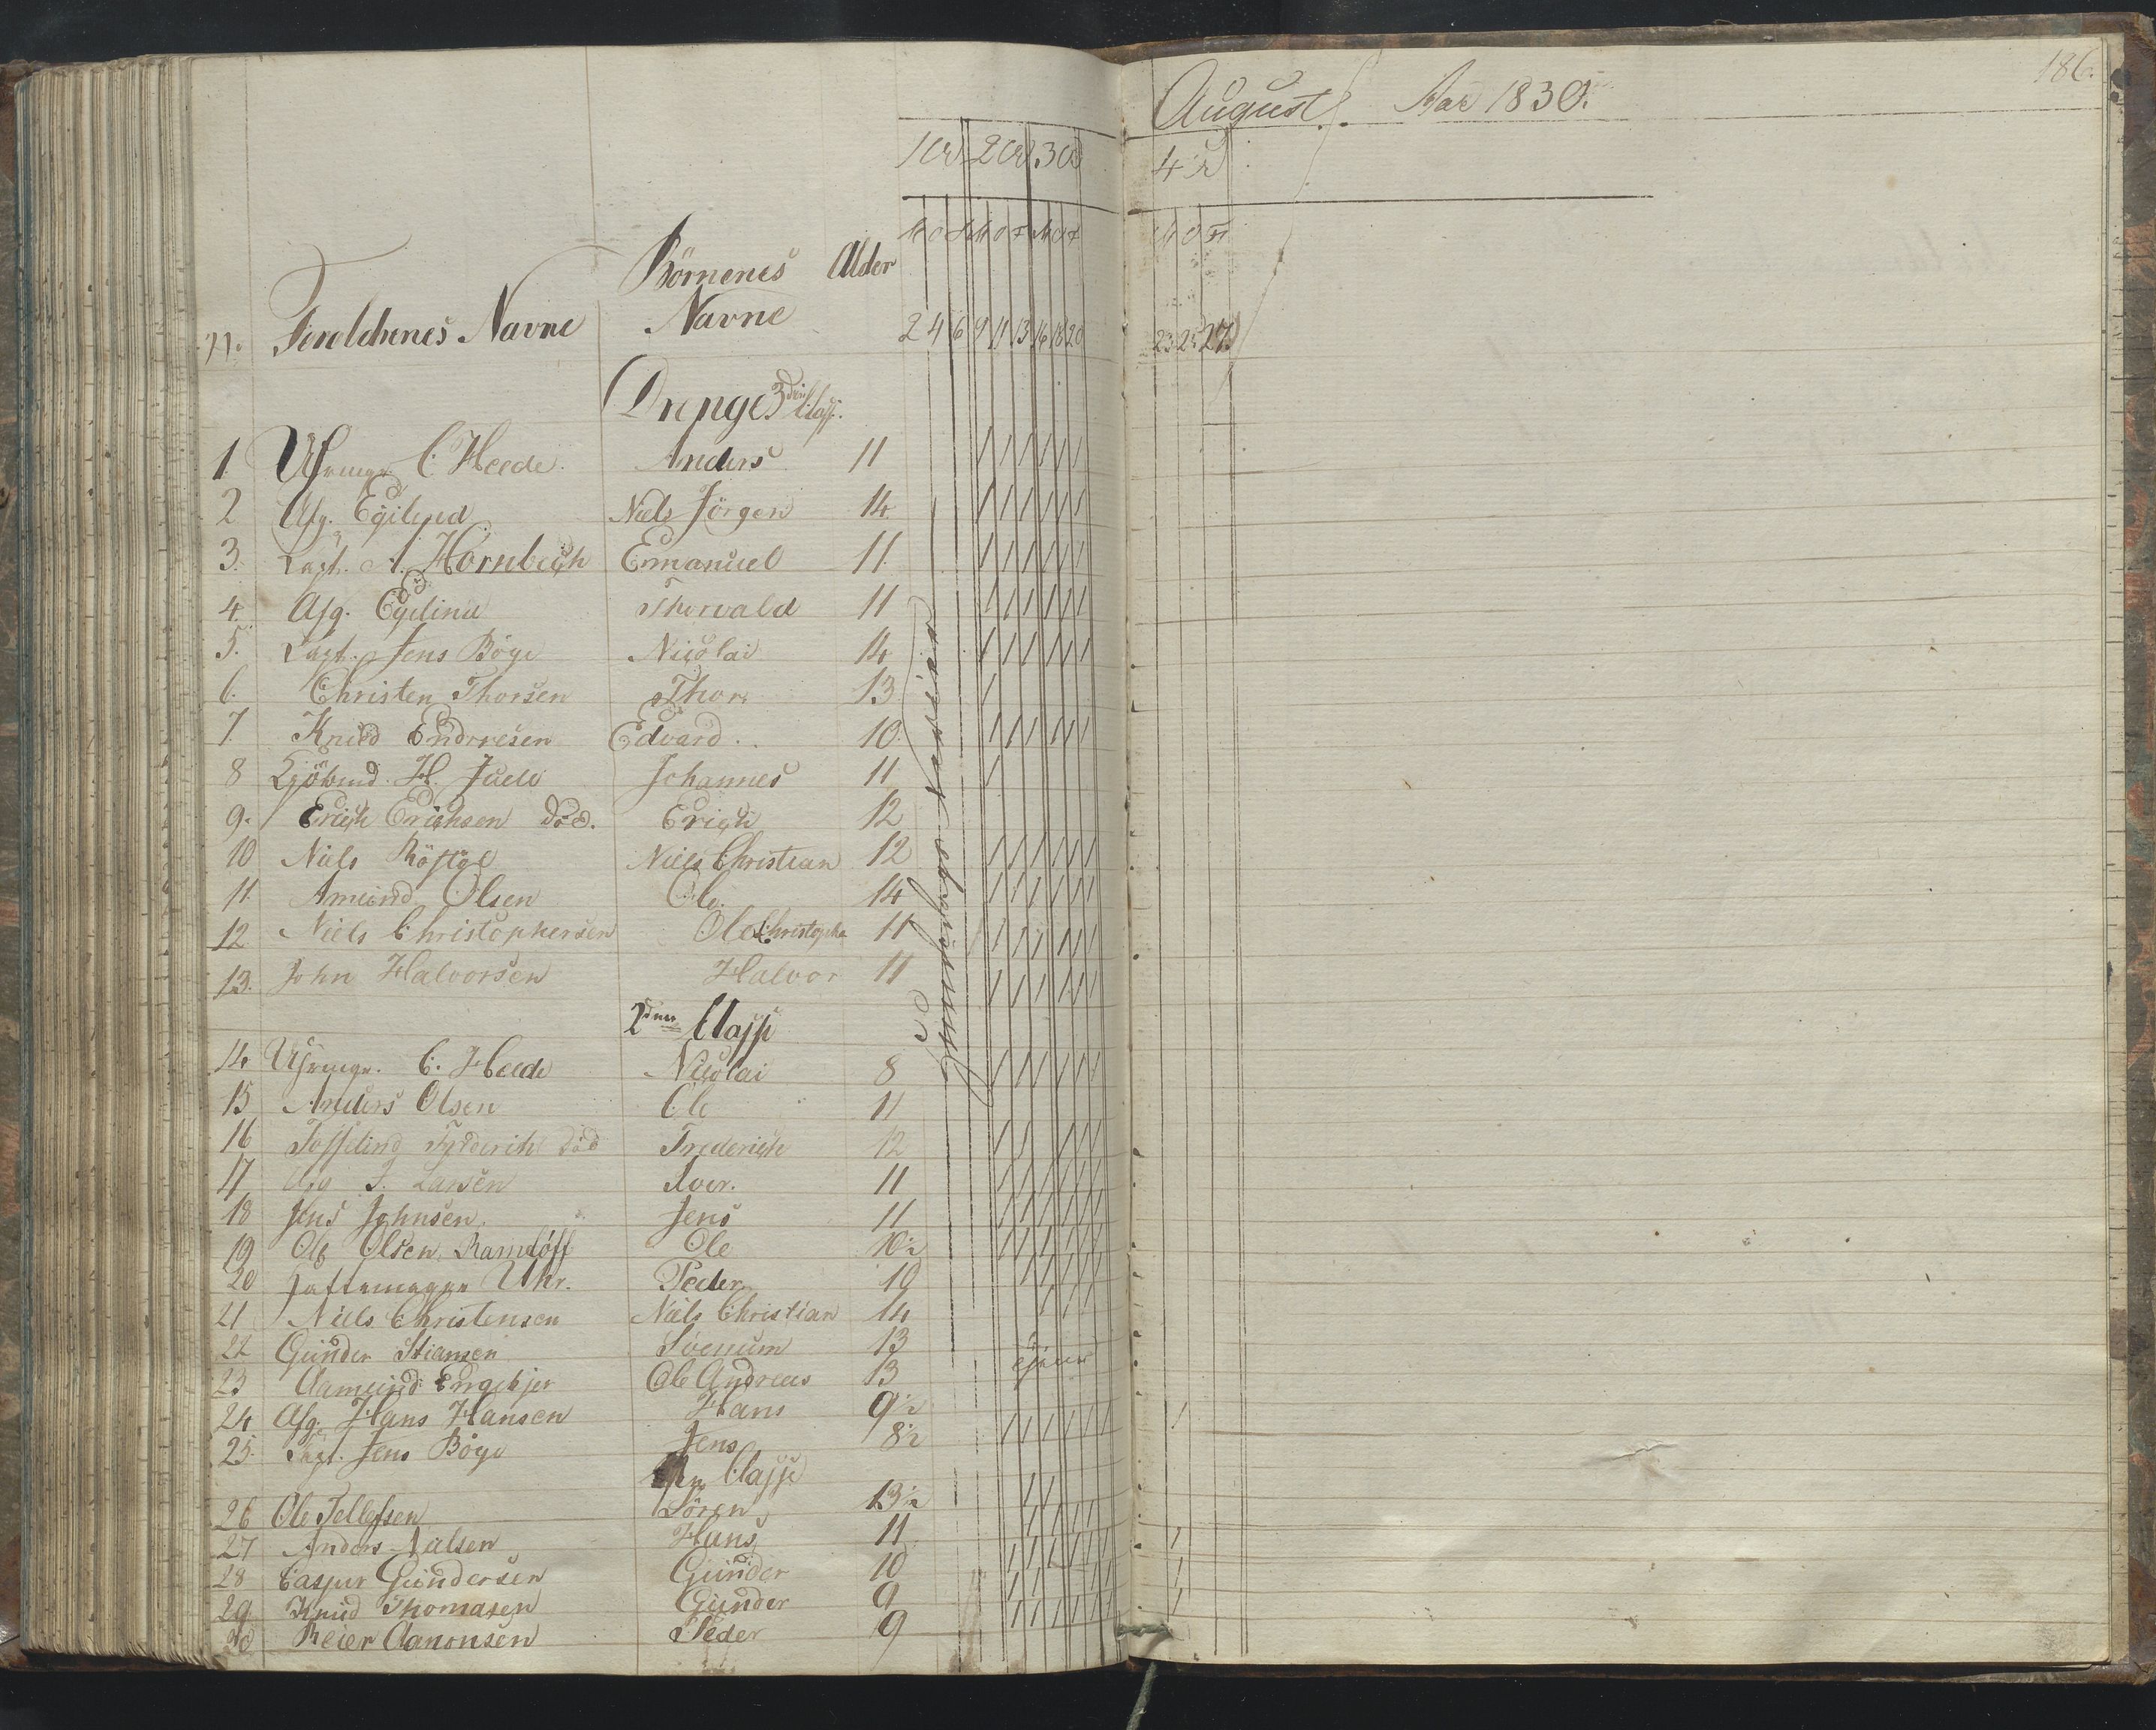 August Aar 1830.
186.
1 U 2 U 3 U 4 U
M O F M O F M O F M O F
Börnenes Alder
N. Foreldrenes Navne Navne 2 4 6 9 11 13 16 18 20 23 25 27
Drenge 3die Class.
1. C. Heede. Anders 11
2 Afg. Egilund Niels Jörgen 14
3. Capt. A. Hornbech Emanuel 11
4. Afg. Thorvald 11
5. Capt. Jens Böye Nicolai 14
6. Christen Thorsen Thor. 13
7. Knud Endresen Edvard.. 10.
8 Kjöbmd. H. Juell Johannes 11
9. Erich Erichsen död. Erich 12
10 Niels Niels Christian 12
11. Amund Olsen Ole. 14
12 Niels Christophersen Ole Christopher 11
13. John Halvorsen Halvor 11
2den Classe
14 C. Heede Nicolai 8
15 Anders Olsen Ole 11
16 död Frederich 12
17 Afg J. Larsen Iver. 11
18 Jens Johnsen. Jens 11
19 Ole Olsen Ole 10½
20 Peder 10
21 Niels Christensen Niels Christian 14
22 Gunder Stiansen 13
23 Aamund Ole Andreas 13
24 Afg. Hans Hansen Hans 9½
25. Capt. Jens Böye Jens 8½
Classe
26 Ole Tellefsen Sören 13½
27 Anders Nielsen Hans 11
28 Casper Gundersen Gunder 10
29 Knud Thomasen Gunder 9
30 Reier Aanonsen Peder 9